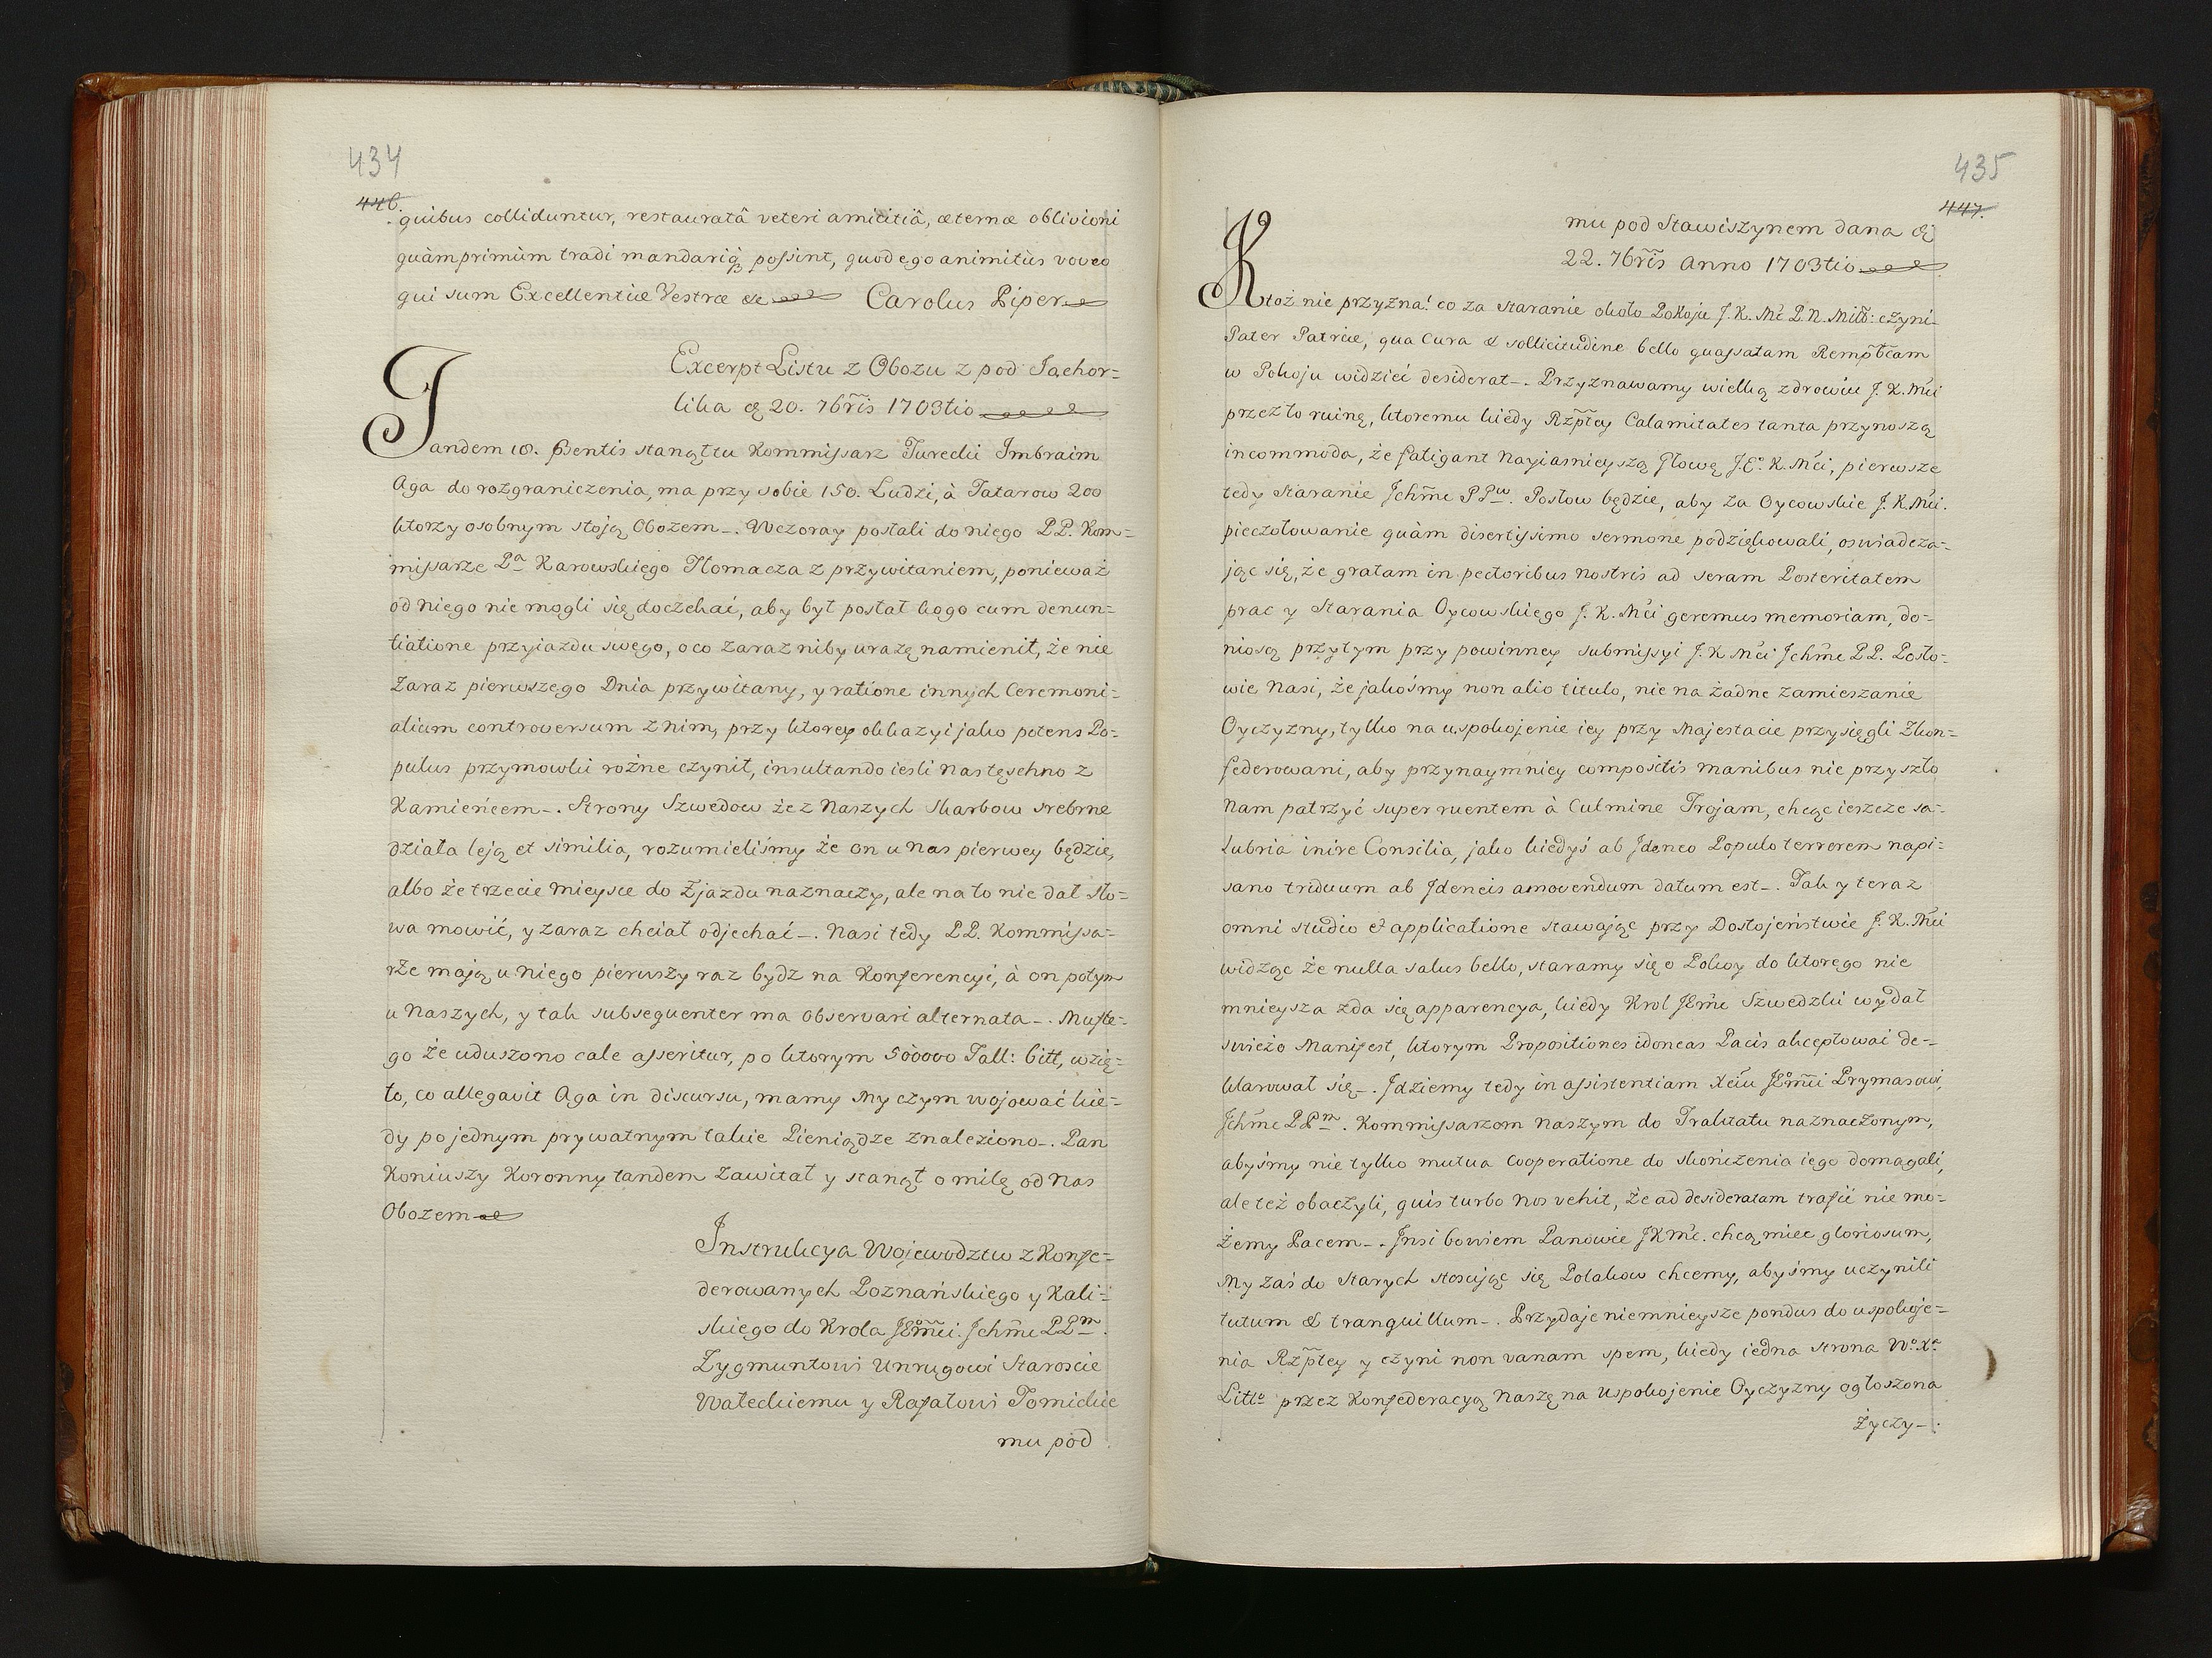 434
446.
quibus colliduntur, restauratâ veteri amicitiâ, æternæ oblivioni
quàmprimùm tradi mandariq́ꝫ possint, quod ego animitùs voveo
qui sum Excellentiæ Vestræ &c Carolus Piper
Excerpt Listu z Obozu z pod Jachor=
lika 20. 7bris 1703tio
Tandem 18. prsentis stanął tu Kommissarz Turecki Imbraim
Aga do rozgraniczenia, ma przy sobie 150. Ludzi, à Tatarow 200
ktorzy osobnym stoją Obozem-. Wczoray posłali do niego PP. Kom=
missarze Pa Karowskiego Tłomacza z przywitaniem, ponieważ
od niego nie mogli się doczekać, aby był posłał kogo cum denun=
tiatione przyjazdu swego, o co zaraz niby urazę namienił, że nie
zaraz pierwszego Dnia przywitany, y ratione innych Ceremoni=
alium controversum z nim, przy ktorey okkazyi jako potens Po=
pulus przymowki rożne czynił, insultando iesli nas tęschno z
Kamieńcem-. Strony Szwedow że z Naszych Skarbow srebrne
działa leją et similia, rozumieliśmy że on u nas pierwey będzie,
albo że trzecie mieysce do Zjazdu naznaczy, ale na to nie dał sło=
wa mowić, y zaraz chciał odjechać-. Nasi tedy PP. Kommissa=
rze mają u niego pierwszy raz bydz na Konferencyi, à on potym
u Naszych, y tak subsequenter ma observari alternata-. Mufte=
go że uduszono cale asseritur, po ktorym 500000 Tall: bitt, wzię=
to, co allegavit Aga in discursu, mamy My czym wojować kie=
dy po jednym prywatnym takie Pieniądze znaleziono-. Pan
Koniuszy Koronny tandem zawitał y stanął o milę od Nas
Obozem
Instrukcya Wojewodztw z Konfe=
derowanych Poznańskiego y Kali=
skiego do Krola JEomci. Jchmc PPm.
Zygmuntowi Unrugowi Staroscie
Wałeckiemu y Rafałowi Tomickie
mu pod
435
447.
mu pod Stawiszynem dana
22. 7bris Anno 1703tio
Ktoż nie przyzna! co za staranie około Pokoju J. K. Mć P. N. Miłł: czyni
Pater Patriæ, qua Cura & sollicitudine bello quassatam Rempbcam
w Pokoju widzieć desiderat-. Przyznawamy wielką zdrowiu J. K. Mci
przez to ruinę, ktoremu kiedy Rzpltey Calamitates tanta przynoszą
incommoda, że fatigant Nayiasnieyszą Głowę J. Eo. K. Mci, pierwsze
tedy staranie Jchmc PPw. Posłow będzie, aby za Oycowskie J. K. Mci.
pieczołowanie quàm disertissimo sermone podziękowali, oswiadcza=
jąc się, że gratam in pectoribus nostris ad seram Posteritatem
prac y starania Oycowskiego J. K. Mci geremus memoriam, do=
niosą przytym przy powinney submissyi J. K Mci Jchmc PP. Posło=
wie Nasi, że jakośmy non alio titulo, nie na żadne zamieszanie
Oyczyzny, tylko na uspokojenie iey przy Majestacie przysięgli Zkon=
federowani, aby przynaymniey compositis manibus nie przyszło
Nam patrzyć super ruentem à Culmine Trojam, chcąc ieszcze sa=
lubria inire Consilia, jako kiedyś ab Idæneo Populo terrorem napi=
sano triduum ab Ideneis amovendum datum est-. Tak y teraz
omni studio & applicatione stawając przy Dostojeństwie J. K. Mci
widząc że nulla salus bello, staramy się o Pokoy do ktorego nie
mnieysza zda się apparencya, kiedy Krol JEmc Szwedzki wydał
swieżo Manifest, ktorym Propositiones idoneas Pacis akceptować de=
klarował się-. Jdziemy tedy in assistentiam Xciu JEomci Prymasowi,
Jchmc PPm. Kommissarzom Naszym do Traktatu naznaczonym,
abyśmy nie tylko mutua Cooperatione do skończenia iego domagali,
ale też obaczyli, quis turbo nos vehit, że ad desideratam trafić nie mo=
żemy Pacem-. Jnsi bowiem Panowie JKMc. chcą miec gloriosum,
My zaś do starych stosując się Polakow chcemy, abyśmy uczynili
tutum & tranquillum-. Przydaje niemnieysze pondus do uspokoje=
nia Rzpltey y czyni non vanam spem, kiedy iedna strona Wo. Xa
Litto przez Konfederacyą Naszę na Uspokojenie Oyczyzny ogłoszona
życzy-.